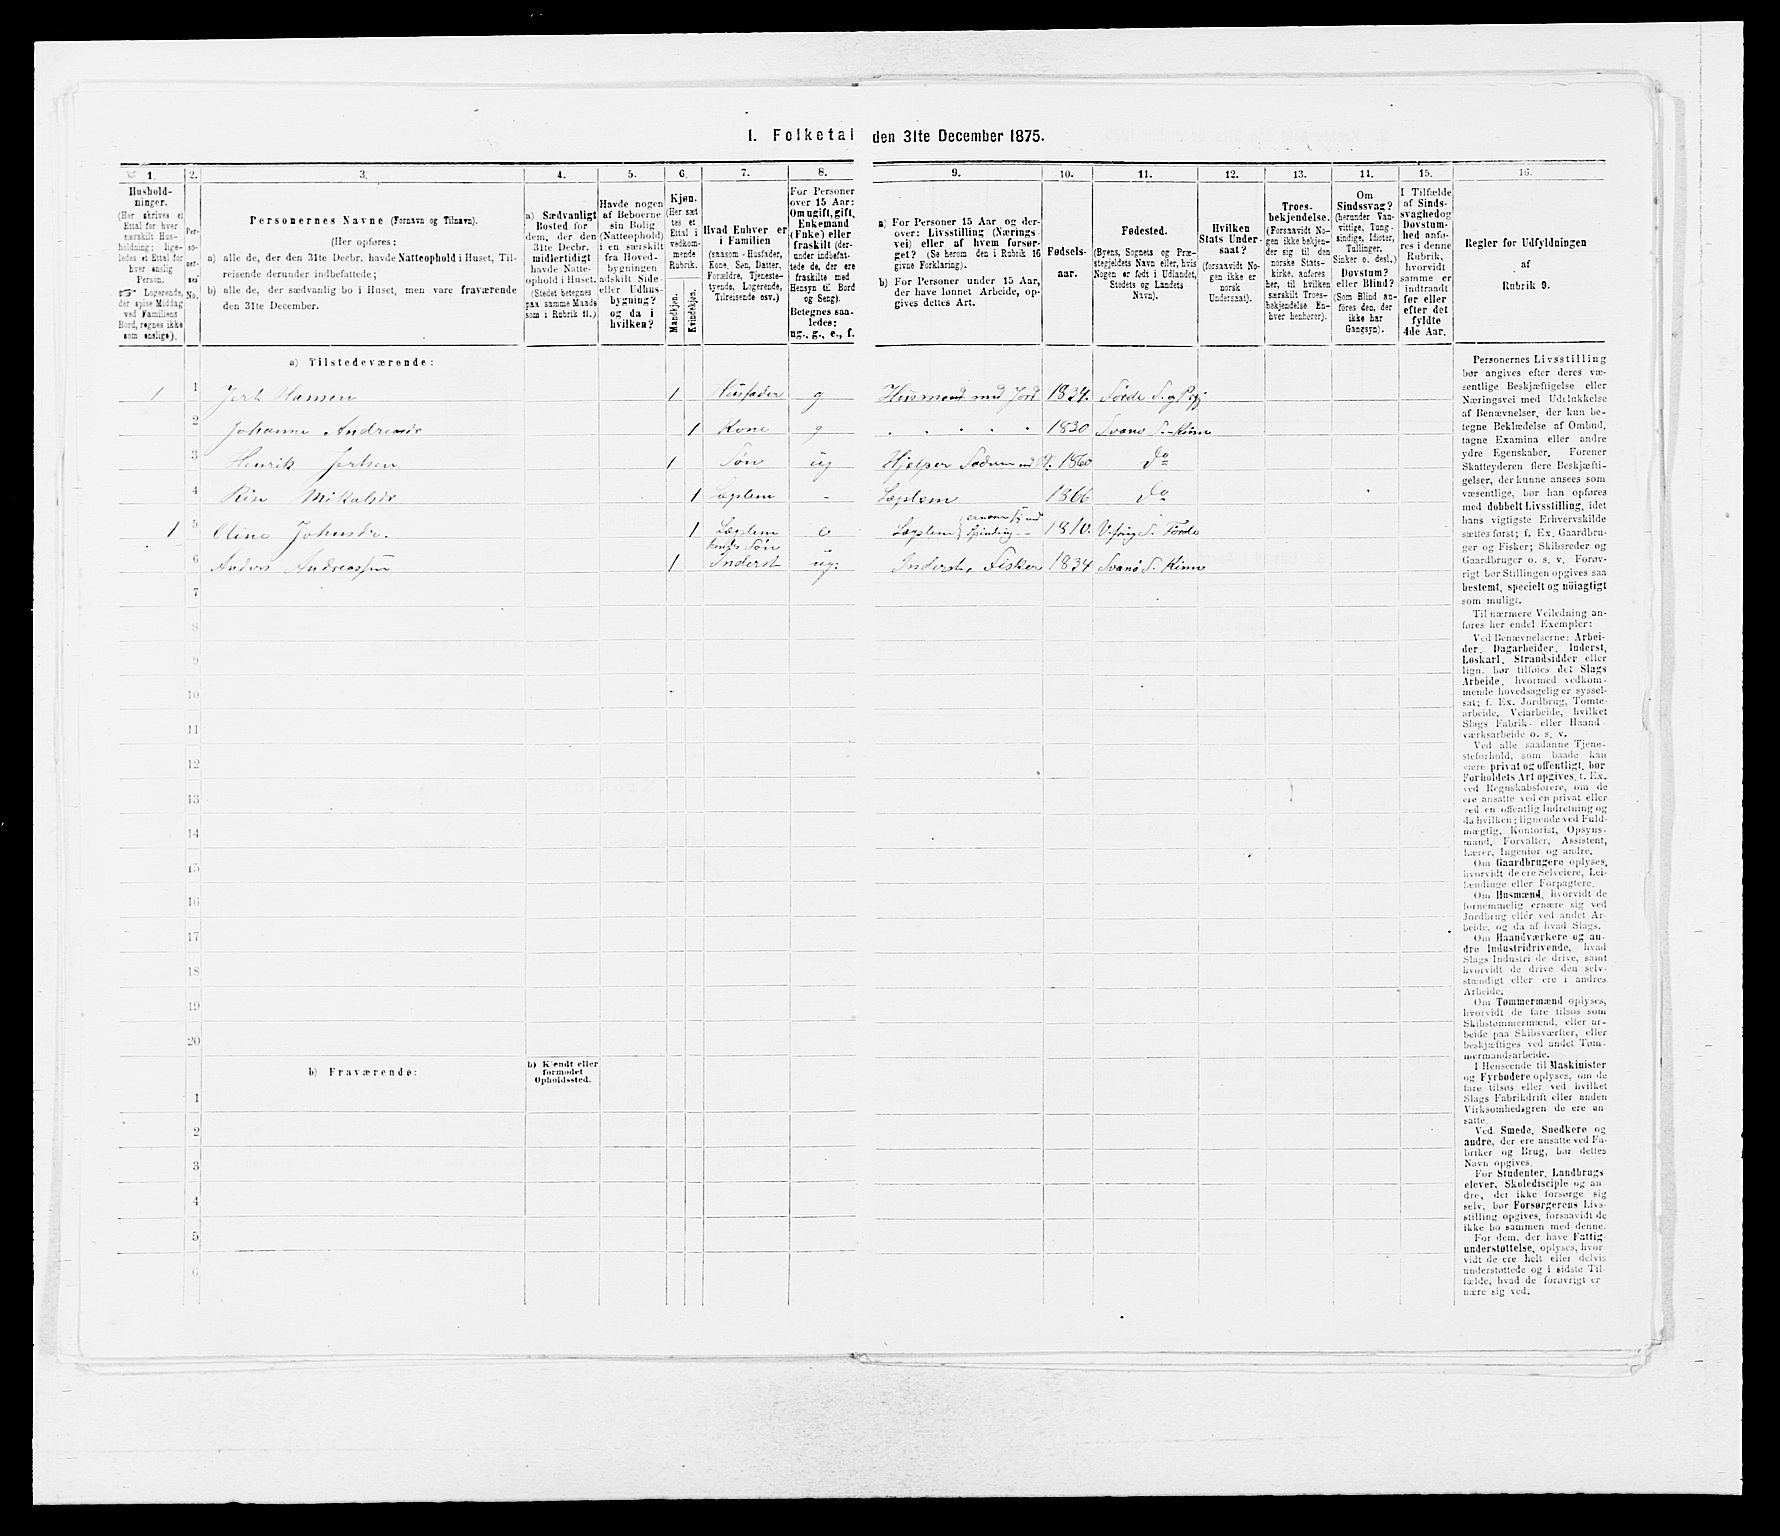 1. Folketal den 31te December 1875.
1.
2.
3.
4.
5.
6.
7.
8.
9.
10.
11.
12.
13.
14.
15.
16.
Hushold-
ninger.
(Her skrives et
Ettal for hver
særskilt Hus-
holdning; lige-
ledes et Ettal for
hver enslig
Person.
☞ Logerende,
der spise Middag
ved Familiens
Bord, regnes ikke
som enslige).
Per-
so-
ner-
nes
No.
Personernes Navne (Fornavn og Tilnavn).
(Her opføres:
a) alle de, der den 31te Decbr. havde Natteophold i Huset, Til-
reisende derunder indbefattede;
b) alle de, der sædvanlig bo i Huset, men vare fraværende
den 31te December.
a) Sædvanligt
Bosted for
dem, der den
31te Decbr.
midlertidigt
havde Natte-
ophold i Huset.
(Stedet betegnes
paa samme Maade
som i Rubrik 11.)
Havde nogen
af Beboerne
sin Bolig
(Natteophold)
i en særskilt
fra Hoved-
bygningen
adskilt Side-
eller Udhus-
bygning?
og da i
hvilken?
Kjøn.
(Her sæt-
tes et
Ettal i
vedkom-
mende
Rubrik.
Mandkjøn.
Kvindekjøn.
Hvad Enhver er
i Familien
(saasom Husfader,
Kone, Søn, Datter,
Forældre, Tjeneste-
tyende, Logerende,
Tilreisende osv.)
For Personer
over 15 Aar:
Om ugift, gift,
Enkemand
(Enke) eller
fraskilt (der-
under indbefat-
tede de, der ere
fraskilte med
Hensyn til Bord
og Seng).
Betegnes saa-
ledes:
ug., g., e., f.
a) For Personer 15 Aar og der-
over: Livsstilling (Nærings-
vei) eller af hvem forsør-
get? (Se herom den i Rubrik 16
givne Forklaring).
b) For Personer under 15 Aar,
der have lønnet Arbeide, op-
gives dettes Art.
Fødsels-
aar.
Fødested.
(Byens, Sognets og Præ-
stegjeldets Navn eller, hvis
Nogen er født i Udlandet,
Stedets og Landets
Navn).
Hvilken
Stats Under-
saat?
(forsaavidt No-
gen ikke er
norsk
Undersaat).
Troes-
bekjendelse.
(Forsaavidt No-
gen ikke bekjen-
der sig til den
norske Stats-
kirke, anføres
her, til hvilken
særskilt Troes-
bekjendelse En-
hver henhører).
Om
Sindssvag?
(herunder Van-
vittige, Tung-
sindige, Idioter,
Tullinger,
Sinker o. desl.)
Døvstum?
eller Blind?
(Som Blind an-
føres den, der
ikke har
Gangsyn).
I Tilfælde
af Sinds-
svaghed og
Døvstum-
hed anfø-
res i denne
Rubrik,
hvorvidt
samme er
indtraadt
før eller
efter det
fyldte
4de Aar.
Regler for Udfyldningen
af
Rubrik 9.
a) Tilstedeværende:
1 1 Jert Hansen 1 Husfader g Husmand med Jord 1834.
2 Johanne Andreasdr 1 Kone g . . . . . 1830 Svanø S. Kinn
3 Henrik Jertsen 1 Søn ug Hjelper Faderen 1860 do
4 Mikalsdr 1 Lægslem - Lægslem 1866 do
1 5 Oline Johnsdr. 1 Lægslem e Lægslem 1810. Førde
hendes Søn
6 Anders Andreassen 1 Inderst ug: Inderst, Fisker 1834 Svanø S. Kinn
7
8
9
10
11
12
13
14
15
16
17
18
19
20
b) Fraværende:
b) Kjendt eller
formodet
Opholdssted.
1
2
3
4
5
6
Personernes Livsstilling
bør angives efter deres væ-
sentlige Beskjæftigelse eller
Næringsvei med Udelukkelse
af Benævnelser, der kun be-
tegne Beklædelse af Ombud,
tagne Examina eller andre
ydre Egenskaber. Forener
Skatteyderen flere Beskjæfti-
gelser, der kunne ansees som
væsentlige, bør han opføres
med dobbelt Livsstilling, idet
hans vigtigste Erhvervskilde
sættes først; f. Ex. Gaardbru-
ger og Fisker; Skibsreder og
Gaardbruger o. s. v. Forøv-
rigt bør Stillingen opgives saa
bestemt, specielt og nöiagtigt
som muligt.
Til nærmere Veiledning an-
føres her endel Exempler:
Ved Benævnelserne: Arbei-
der, Dagarbeider, Inderst,
Løskarl, Strandsidder eller
lign. bør tilføies det Slags
Arbeide, hvormed vedkom-
mende hovedsagelig er syssel-
sat; f. Ex. Jordbrug, Tomte-
arbeide, Veiarbeide, hvilket
Slags Fabrik- eller Haand-
værksarbeide o. s. v.
Ved alle saadanne Tjene-
steforhold, som baade kan
være privat og offentligt, bør
Forholdets Art opgives, f. Ex.
ved Regnskabsførere, om de
ere ansatte ved en privat eller
ved en offentlig Indretning og
da hvilken; lignende ved Fuld-
mægtig, Kontorist, Opsyns-
mand, Forvalter, Assistent,
Lærer, Ingeniør og andre.
Om Gaardbrugere oplyses,
hvorvidt de ere Selveiere, Lei-
lændinge eller Forpagtere.
Om Husmænd, hvorvidt de
fornemmelig ernære sig ved
Jordbrug eller ved andet Ar-
beide, og da af hvad Slags.
Om Haandværkere og an-
dre Industridrivende, hvad
Slags Industri de drive, samt
hvorvidt de drive den selv-
stændigt eller ere i andres
Arbeide.
Om Tømmermænd oplyses,
hvorvidt de fare tilsøs som
Skibstømmermænd, eller ar-
beide paa Skibsværfter, eller
beskjæftiges ved andet Tøm-
mermandsarbeide.
I Henseende til Maskinister
og Fyrbødere oplyses, om de
fare tilsøs eller ved hvilket
Slags Fabrikdrift eller anden
Virksomhedsgren de ere an-
satte.
Ved Smede, Snedkere og
andre, der ere ansatte ved Fa-
briker og Brug, bør dettes
Navn opgives.
For Studenter, Landbrugs-
elever, Skoledisciple og an-
dre, der ikke forsørge sig
selv, bør Forsørgerens Livs-
stilling opgives, forsaavidt de
ikke bo sammen med denne.
For dem, der have Fattig-
understøttelse, oplyses, hvor-
vidt de ere helt eller delvis
understøttede og i sidste Til-
fælde, hvad de forøvrigt er-
nære sig ved.